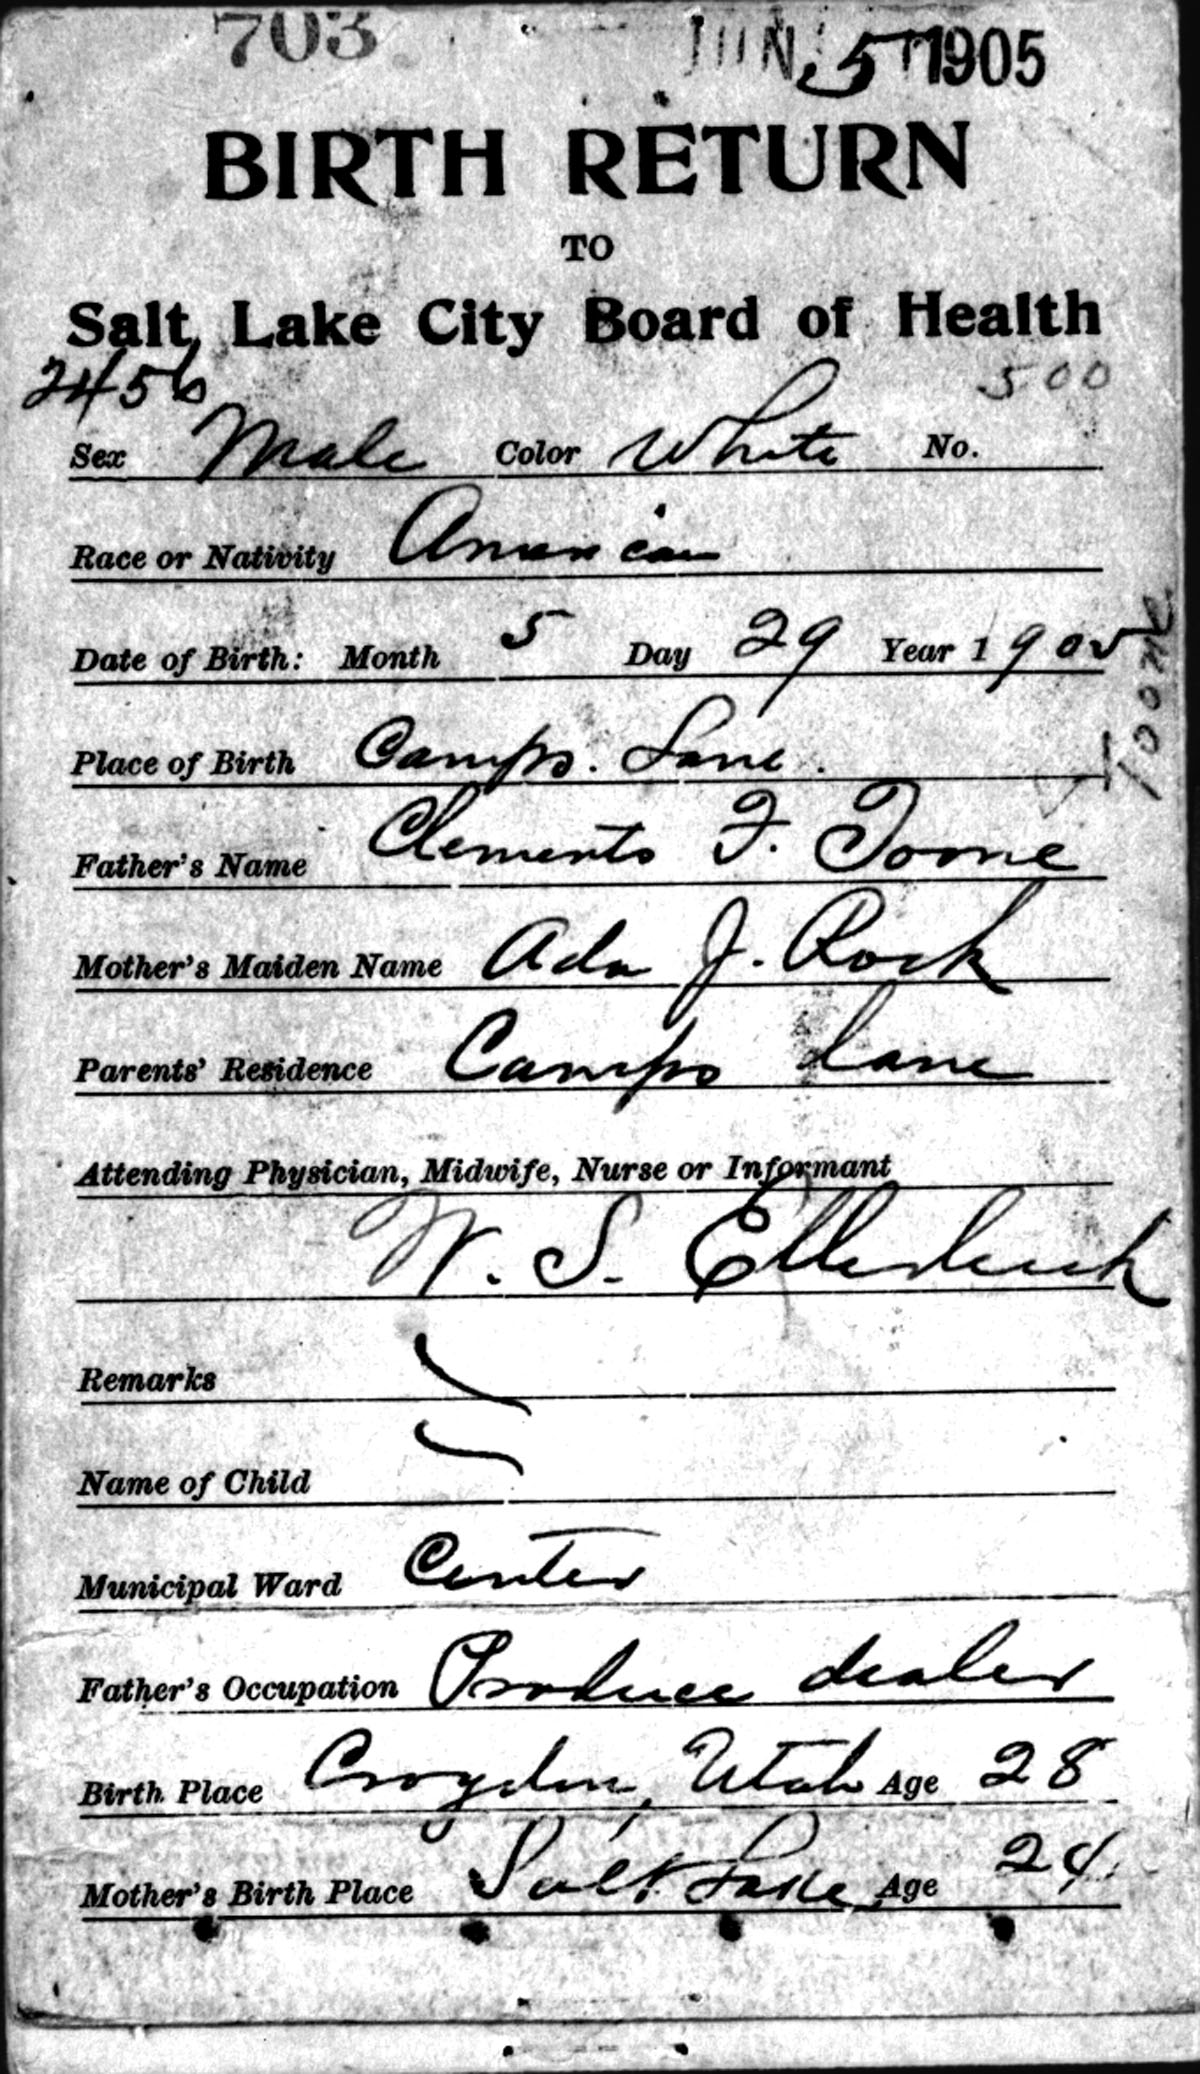 703 JUN 5 1905
BIRTH RETURN
TO
Salt Lake City Board of Health
2456 500
Sex Male Color White No.
Race or Nativity American
Date of Birth: Month 5 Day 29 Year 1905
Place of Birth Camps. Lane.
Father's Name Clements F. Toone
Mother's Maiden Name Ada J. Rock
Parents' Residence Camps lane
Attending Physician, Midwife, Nurse or Informant
W. S. Ellerbeck
Remarks
Name of Child
Municipal Ward Center
Father's Occupation Produce dealer
Birth Place Croydon, Utah Age 28
Mother's Birth Place Salt Lake Age 24